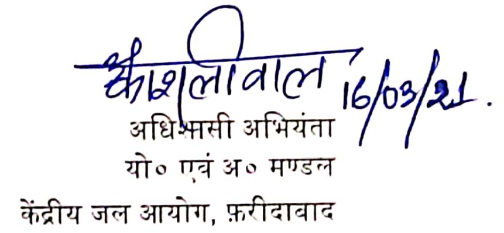 काशलीवाल 16/03/21.
अधिशासी अभियंता
यो० एवं अ० मण्डल
केंद्रीय जल आयोग, फ़रीदाबाद